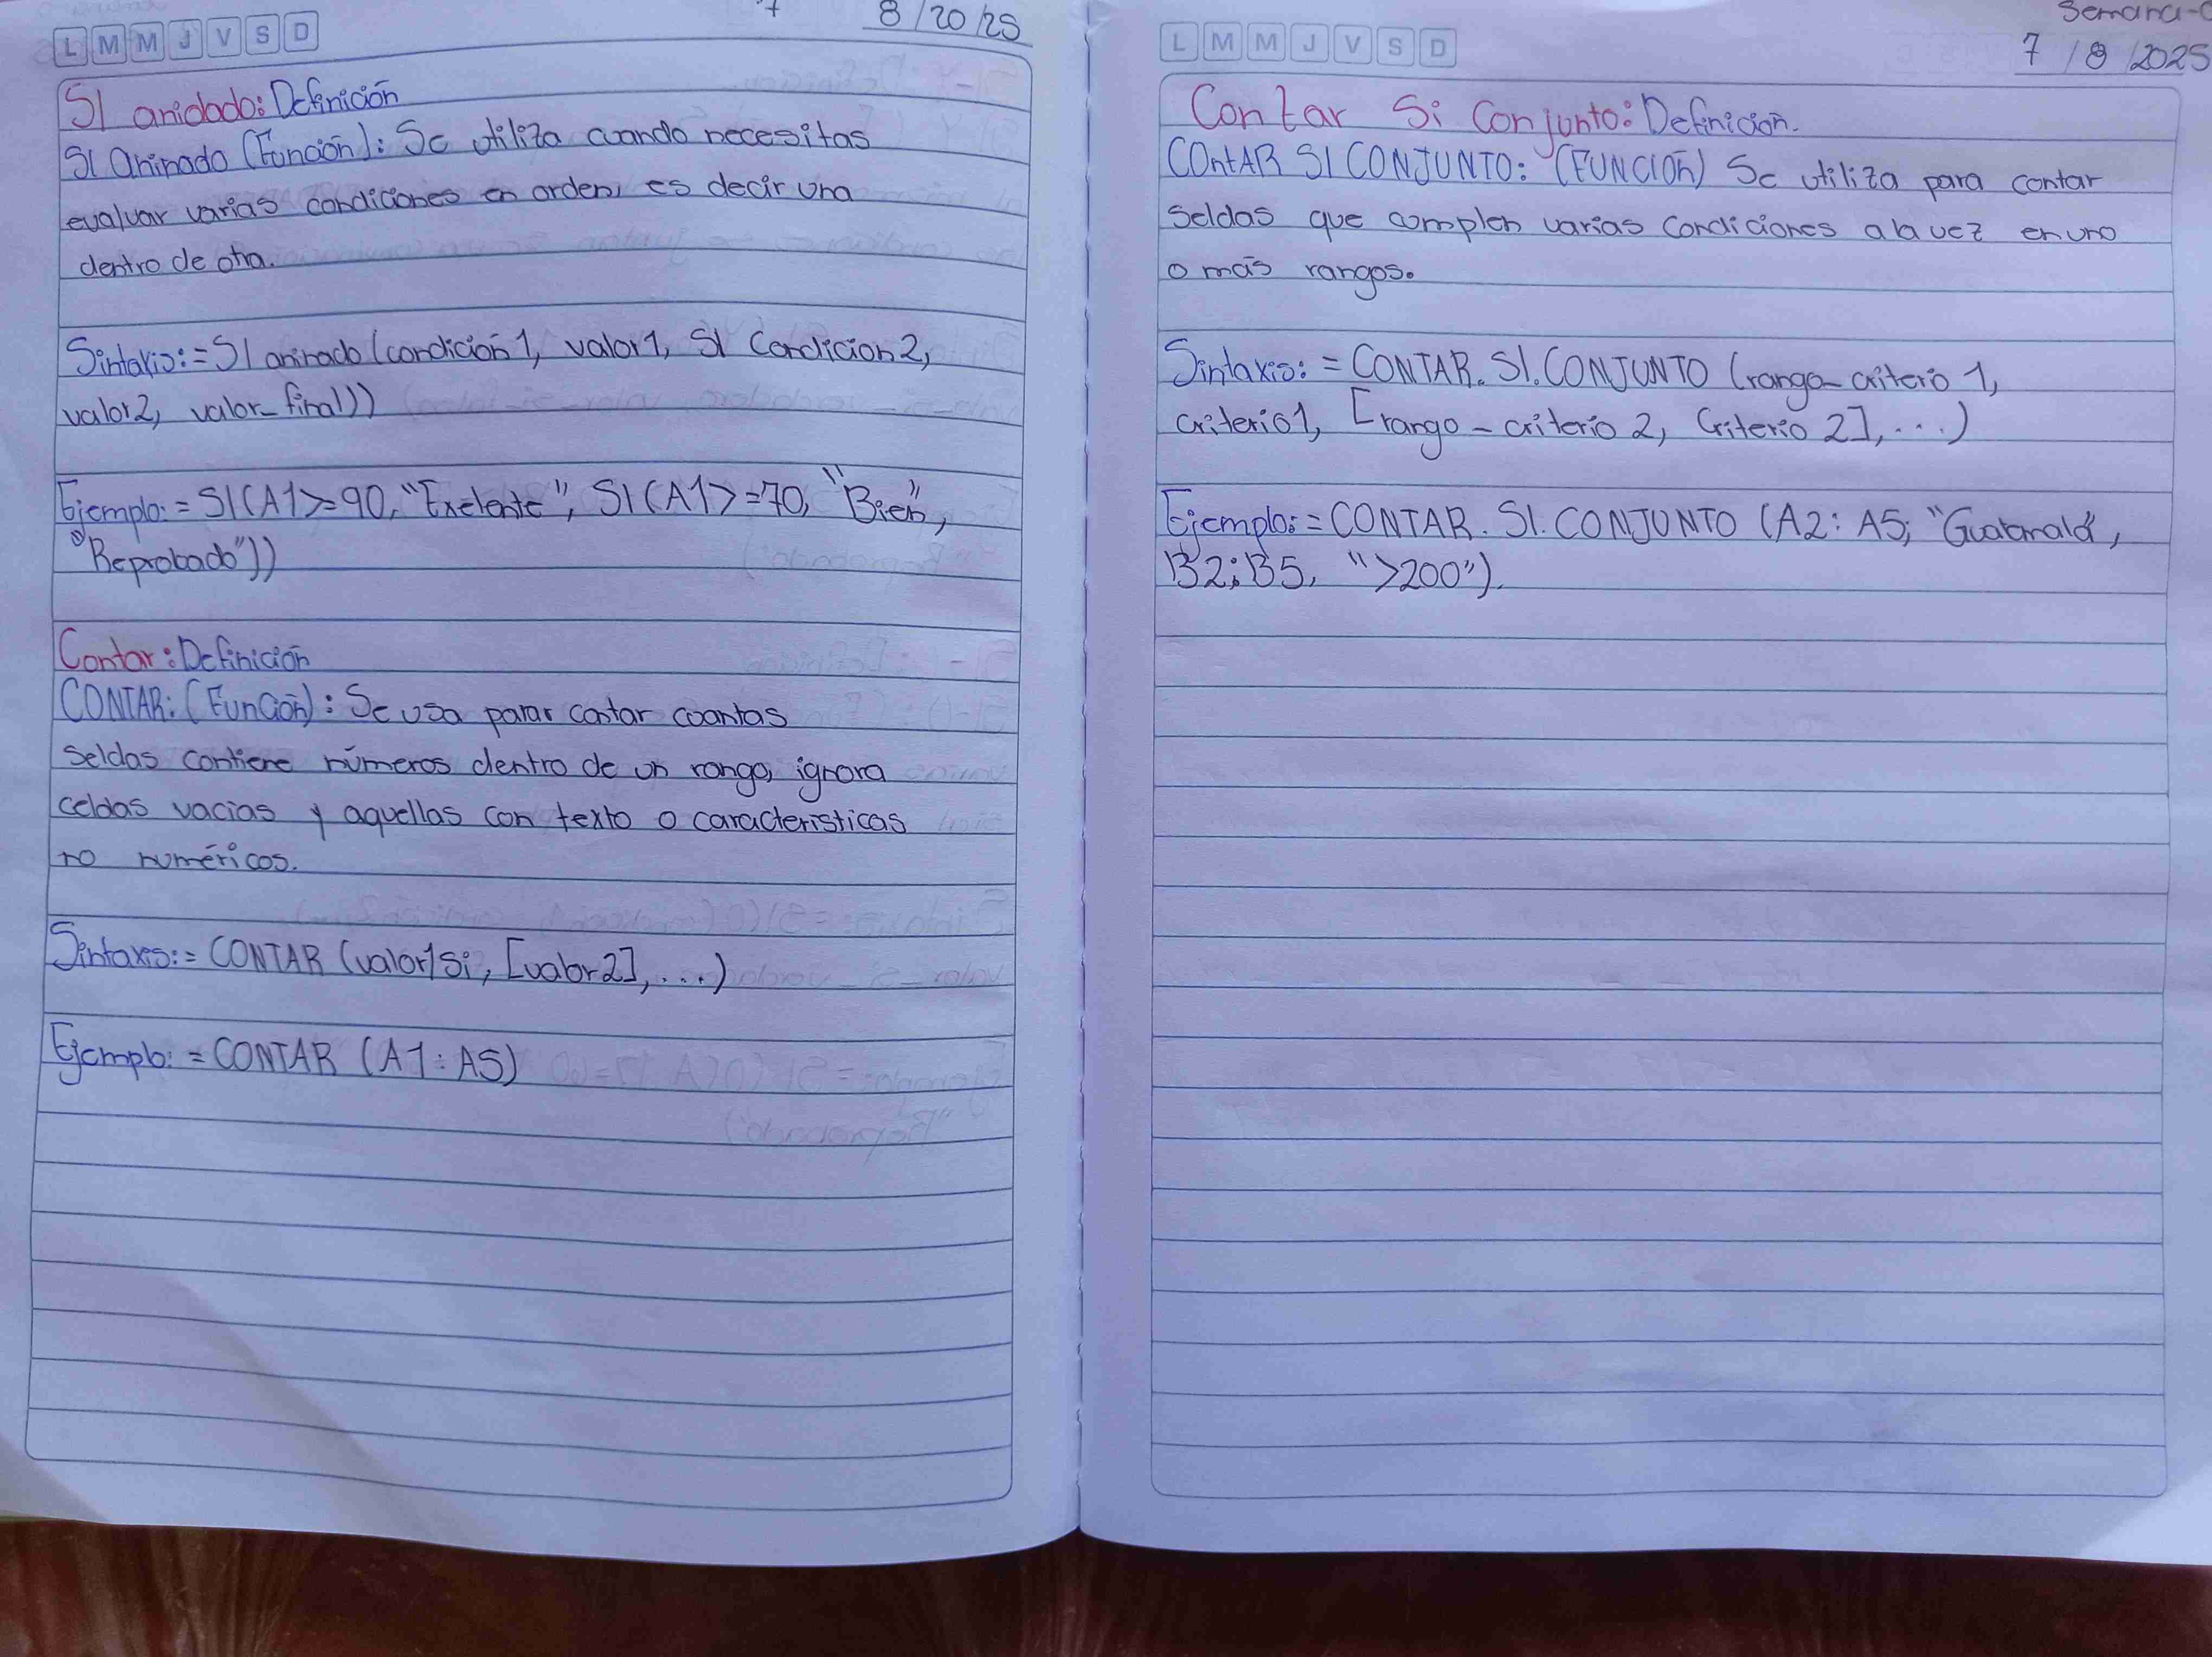 L M M J V S D
8/20/25
SI anidado: Definición
SI Aninado (Función): Se utiliza cuando necesitas
evaluar varias condiciones en orden, es decir una
dentro de otra.
Sintaxis: =SI aninado (condición 1, valor 1, SI Condicion 2,
valor 2, valor_final))
Ejemplo: = SI(A1>=90, "Exelente", SI(A1>=70, "Bien",
"Reprobado"))
Contar: Definición
CONTAR: (Función): Se usa parar contar cuantas
seldas contiene números dentro de un rango, ignora
celdas vacias y aquellas con texto o caracteristicas
no numéricos.
Sintaxis: = CONTAR (valor1si, [valor 2], ...)
Ejemplo: = CONTAR (A1: A5)
L M M J V S D
7/8/2025
Contar Si Conjunto: Definición.
CONtAR SI CONJUNTO: (FUNCIÓN) Se utiliza para contar
seldas que complen varias condiciones a la vez en uno
o más rangos.
Sintaxis: = CONTAR. SI. CONJUNTO (rango_criterio 1,
criterio1, [rango_criterio 2, Criterio 2], ...)
Ejemplo: = CONTAR. SI. CONJUNTO (A2: A5;
B2:B5, ">200").